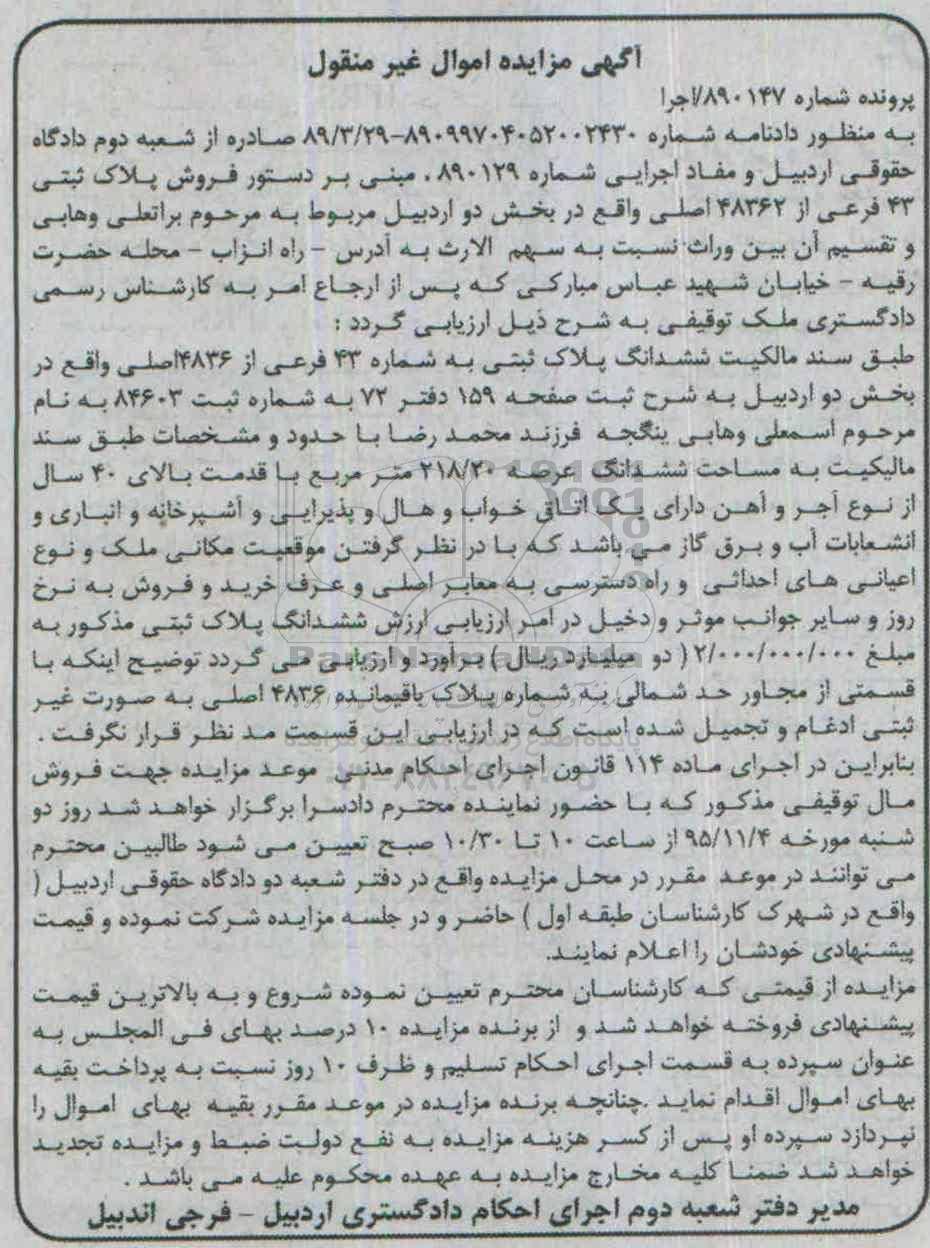 آگهی مزایده اموال غیر منقول
پرونده شماره ۸۹۰۱۴۷/اجرا
به منظور دادنامه شماره ۸۹۰۹۹۷۰۴۰۵۲۰۰۲۴۳۰-۸۹/۳/۲۹ صادره از شعبه دوم دادگاه
حقوقی اردبیل و مفاد اجرایی شماره ۸۹۰۱۲۹ . مبنی بر دستور فروش پلاک ثبتی
۴۳ فرعی از ۴۸۳۶۲ اصلی واقع در بخش دو اردبیل مربوط به مرحوم براتعلی وهابی
و تقسیم آن بین وراث نسبت به سهم الارث به آدرس - راه انزاب - محله حضرت
رقیه - خیابان شهید عباس مبارکی که پس از ارجاع امر به کارشناس رسمی
دادگستری ملک توقیفی به شرح ذیل ارزیابی گردد :
طبق سند مالکیت ششدانگ پلاک ثبتی به شماره ۴۳ فرعی از ۴۸۳۶اصلی واقع در
بخش دو اردبیل به شرح ثبت صفحه ۱۵۹ دفتر ۷۲ به شماره ثبت ۸۴۶۰۳ به نام
مرحوم اسمعلی وهابی ینگجه فرزند محمد رضا با حدود و مشخصات طبق سند
مالیکیت به مساحت ششدانگ عرصه ۲۱۸/۲۰ متر مربع با قدمت بالای ۴۰ سال
از نوع آجر و آهن دارای یک اتاق خواب و هال و پذیرایی و آشپرخانه و انباری و
انشعابات آب و برق گاز می باشد که با در نظر گرفتن موقعیت مکانی ملک و نوع
اعیانی های احداثی و راه دسترسی به معابر اصلی و عرف خرید و فروش به نرخ
روز و سایر جوانب موثر و دخیل در امر ارزیابی ارزش ششدانگ پلاک ثبتی مذکور به
مبلغ ۲/۰۰۰/۰۰۰/۰۰۰ ( دو میلیارد ریال ) برآورد و ارزیابی می گردد توضیح اینکه با
قسمتی از مجاور حد شمالی به شماره پلاک باقیمانده ۴۸۳۶ اصلی به صورت غیر
ثبتی ادغام و تجمیل شده است که در ارزیابی این قسمت مد نظر قرار نگرفت .
بنابراین در اجرای ماده ۱۱۴ قانون اجرای احکام مدنی موعد مزایده جهت فروش
مال توقیفی مذکور که با حضور نماینده محترم دادسرا برگزار خواهد شد روز دو
شنبه مورخه ۹۵/۱۱/۴ از ساعت ۱۰ تا ۱۰/۳۰ صبح تعیین می شود طالبین محترم
می توانند در موعد مقرر در محل مزایده واقع در دفتر شعبه دو دادگاه حقوقی اردبیل (
واقع در شهرک کارشناسان طبقه اول ) حاضر و در جلسه مزایده شرکت نموده و قیمت
پیشنهادی خودشان را اعلام نمایند.
مزایده از قیمتی که کارشناسان محترم تعیین نموده شروع و به بالاترین قیمت
پیشنهادی فروخته خواهد شد و از برنده مزایده ۱۰ درصد بهای فی المجلس به
عنوان سپرده به قسمت اجرای احکام تسلیم و ظرف ۱۰ روز نسبت به پرداخت بقیه
بهای اموال اقدام نماید .چنانچه برنده مزایده در موعد مقرر بقیه بهای اموال را
نپردازد سپرده او پس از کسر هزینه مزایده به نفع دولت ضبط و مزایده تجدید
خواهد شد ضمنا کلیه مخارج مزایده به عهده محکوم علیه می باشد .
مدیر دفتر شعبه دوم اجرای احکام دادگستری اردبیل - فرجی اندبیل